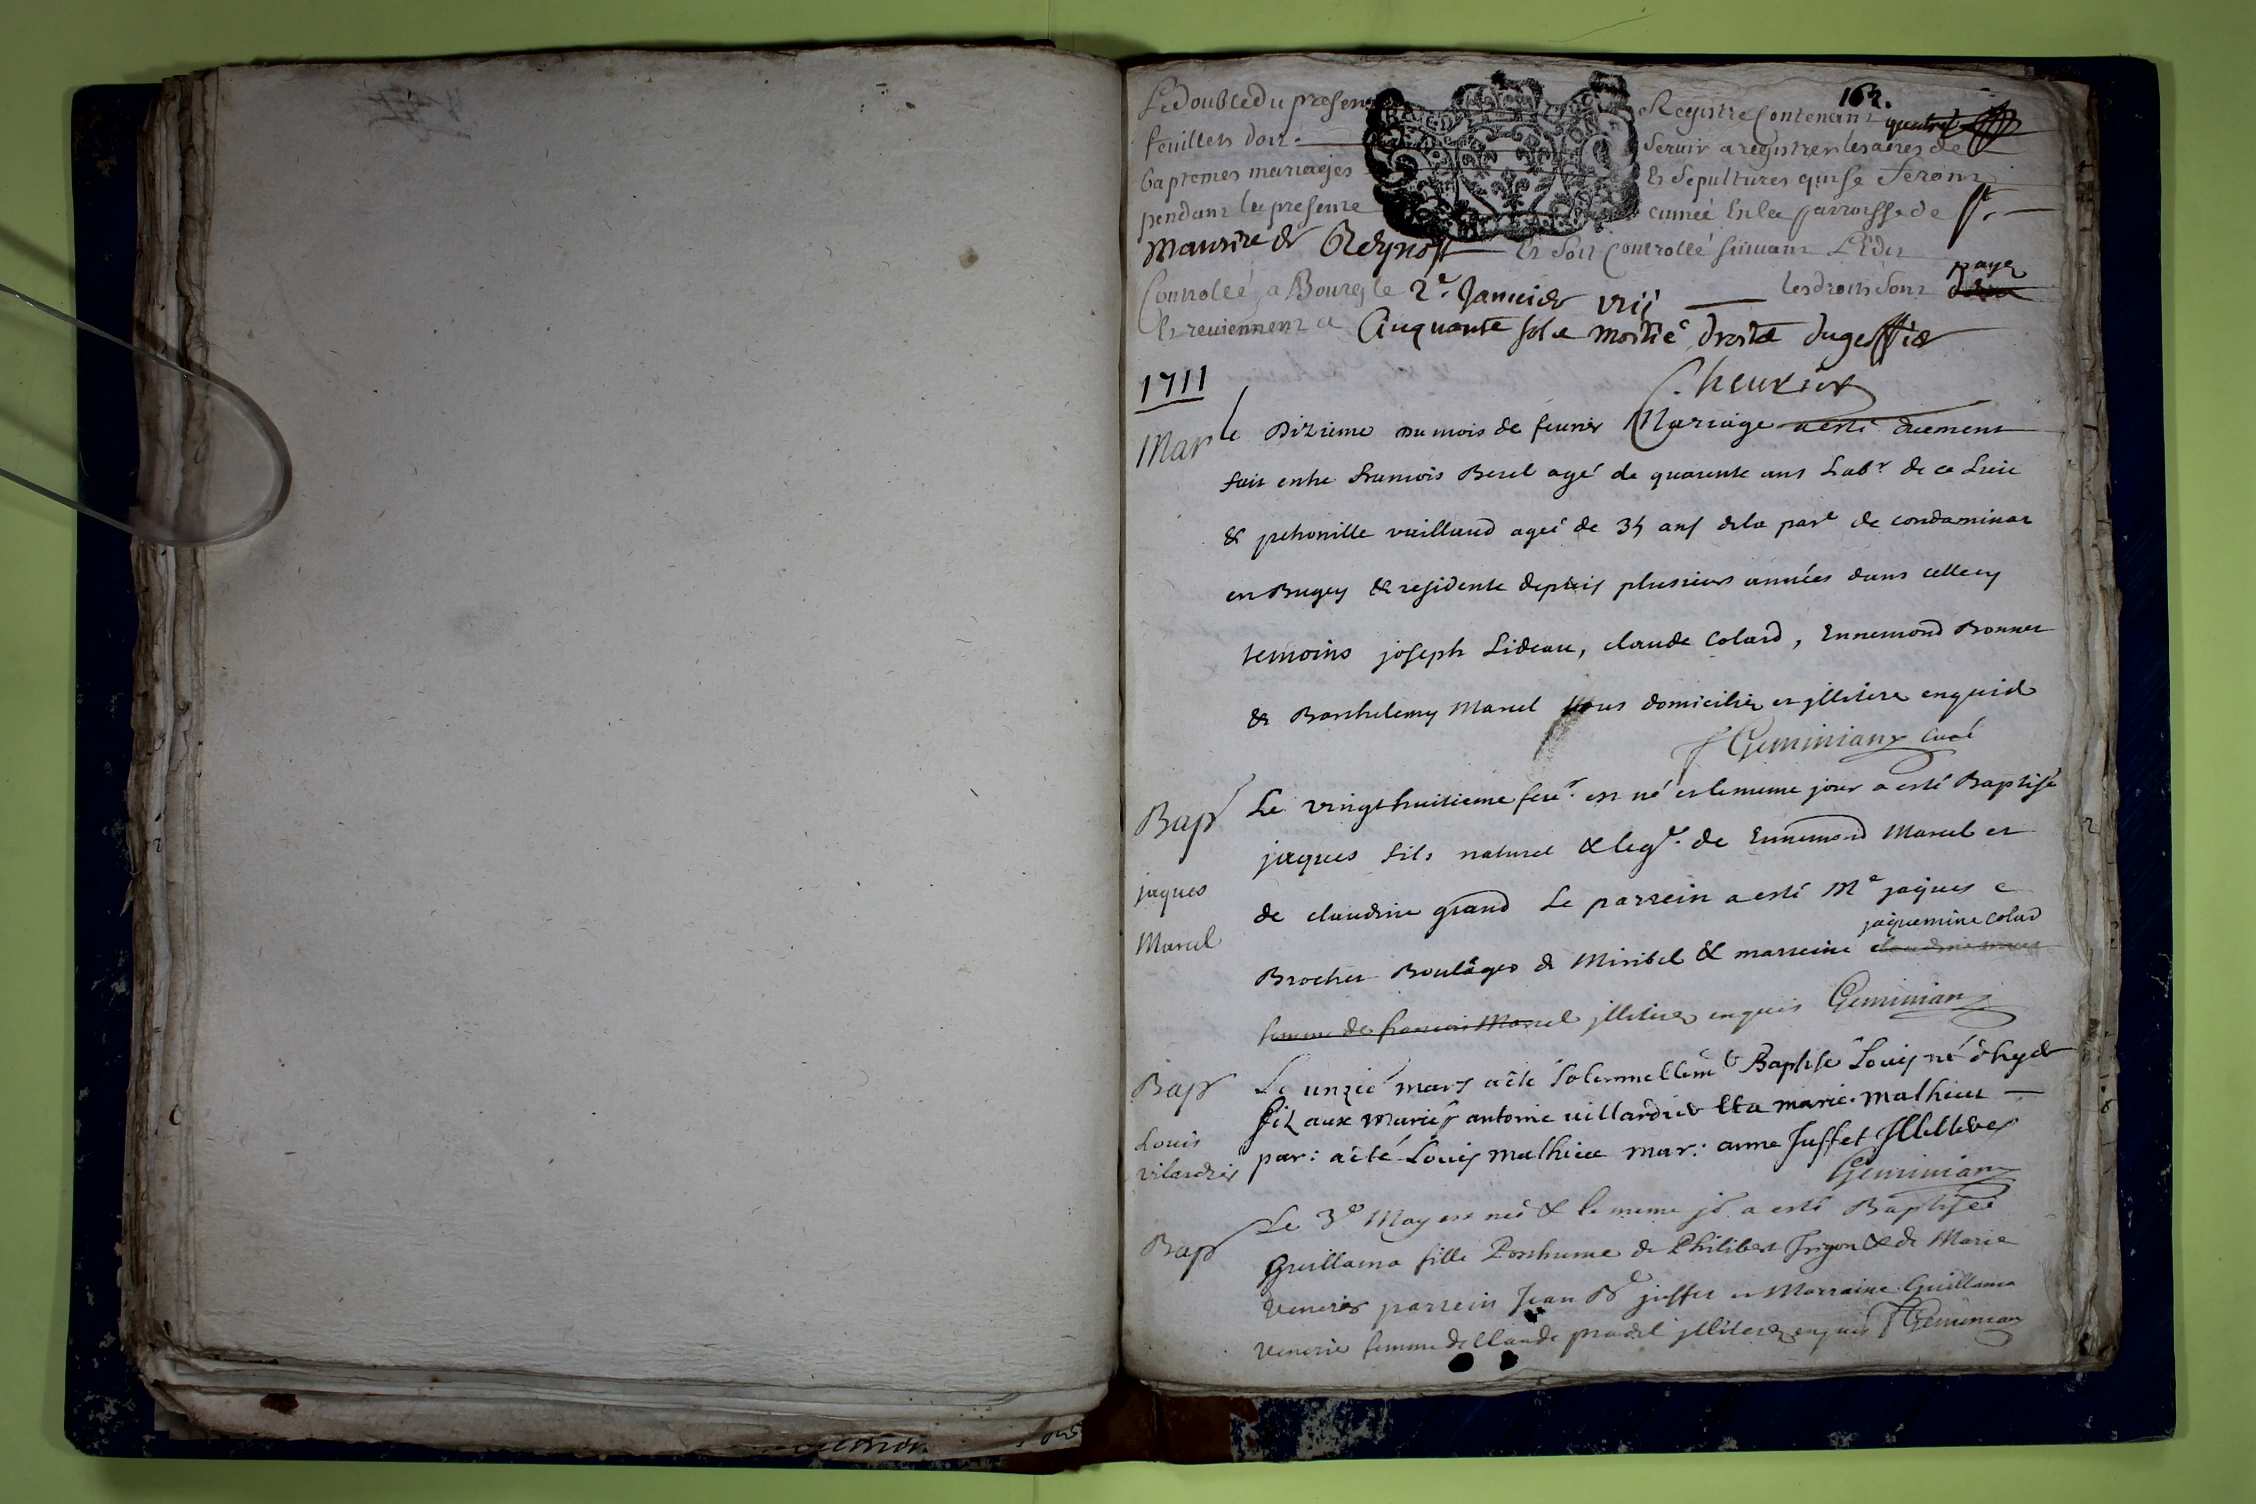 162.
Le double du present Registre Contenant quatre
feuillets doit Servir a registrer les actes de
baptemes mariages Et Sepultures qui se feront
pendant la presente année En la parroisse de St
Maurice de Reynost Et Soit Controllé suivant L'Edit
Controllé a Bourg le 2e. Janvier vii les droits sont paye
Et reviennent a Cinquante sol
Chevrier
1711
Mar
le Dixieme du mois de fevrier Mariage a esté duement
fait entre francois Berel agé de quarente ans Labr de ce Lieu
& petronille vuilland agée de 35 ans de la pare de condaminat
en Bugey & residente depuis plusieurs années dans cellecy
temoins joseph Lideau, claude Colard, Ennemond Bonnet
& Barthelemy Marcel tous domicilies et jlliteres enquid
f Geminiany curé
Bap
jaques
Marcel
Le vingthuitieme fevr. est né et le meme jour a esté Baptisé
jaques fils naturel & legt. de Ennemond Marcel et
de claudine grand Le parrein a esté Me jaques
jaquemine Colard
Brochet Boulâger de Miribel & marreine
femme de francois Marcel jlliterez enquis Geminiany
Bap
Louis
vilardier
Le unzie mars a êté solemnellemt Baptisé Louis né d'hyer
fil aux mariés antoine villardier Et a marie mathieu
par: a êté Louis mathieu mar: anne Juffet Jlliteres
Geminiany
Bap
Le 3e May est neé & le meme jr a esté Baptisée
Guillama fille Posthume de Philibert Trigon & de Marie
Venerier parrein Jean Bte juffet et Marraine Guillama
Venerie femme de Claude pradel jlliterez enquis f Geminiany